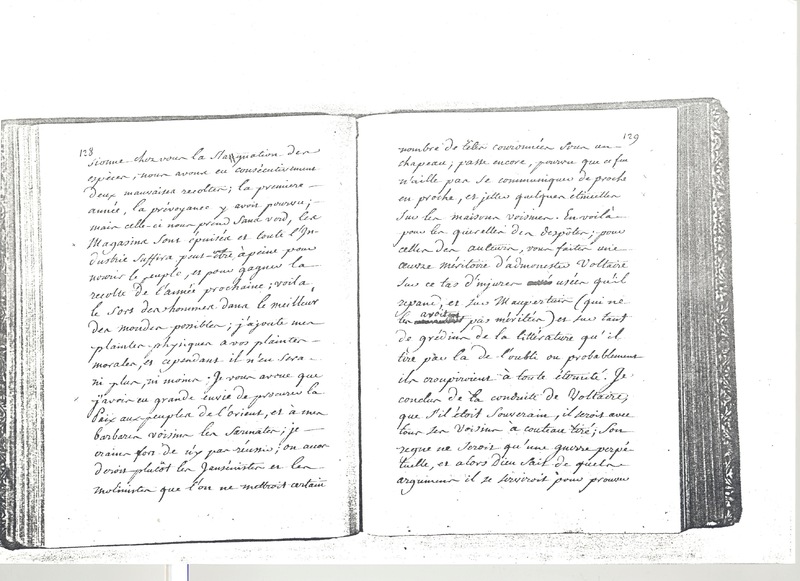 128
sionne chez vous la Stagnation des
especes; nous avons eu consécutivement
deux mauvaises recoltes; la premiere
année, la prévoyance y avoit pourvu;
mais celle-ci nous prend Sans verd, les
Magasins Sont épuisés et toute l'In-
dustrie Suffira peut-être à peine pour
nourir le peuple, et pour gagner la
recolte de l'année prochaine; voila
le Sort des hommes dans le meilleur
des mondes possibles; j'ajoute mes
plaintes physiques a vos plaintes
morales, et cependant il n'en Sera
ni plus, ni moins. Je vous avoue que
j'avois eu grande envie de procurer la
Paix aux peuples de l'orient, et a mes
barbares voisins les Sarmates; je
crains fort de n'y pas réussir; on accor
deroit plutôt les Jansenistes et les
molinistes que l'on ne mettroit certain
129
nombre de têtes couronnées Sous un
chapeau; passe encore, pourvu que ce feu
n'aille pas se communiquer de proche
en proche, et jetter quelques étincelles
Sur les maisons voisines. En voilà
pour les querelles des despotes; pour
celles des auteurs, vous faites une
œuvre méritoire d'admonester Voltaire
Sur ce tas d'injures usées qu'il
repand, et sur Maupertuis (qui ne
les avoit pas méritées) et sur tant
de grédins de la littérature qu'il
tire par la de l'oubli ou probablement
ils croupiroient à toute éternité. Je
conclus de la conduite de Voltaire,
que S'il étoit Souverain, il seroit avec
tous Ses Voisins à couteau tiré; Son
regne ne Seroit qu'une guerre perpé
tuelle, et alors Dieu Sait de quels
argumens il se serviroit pour prouver